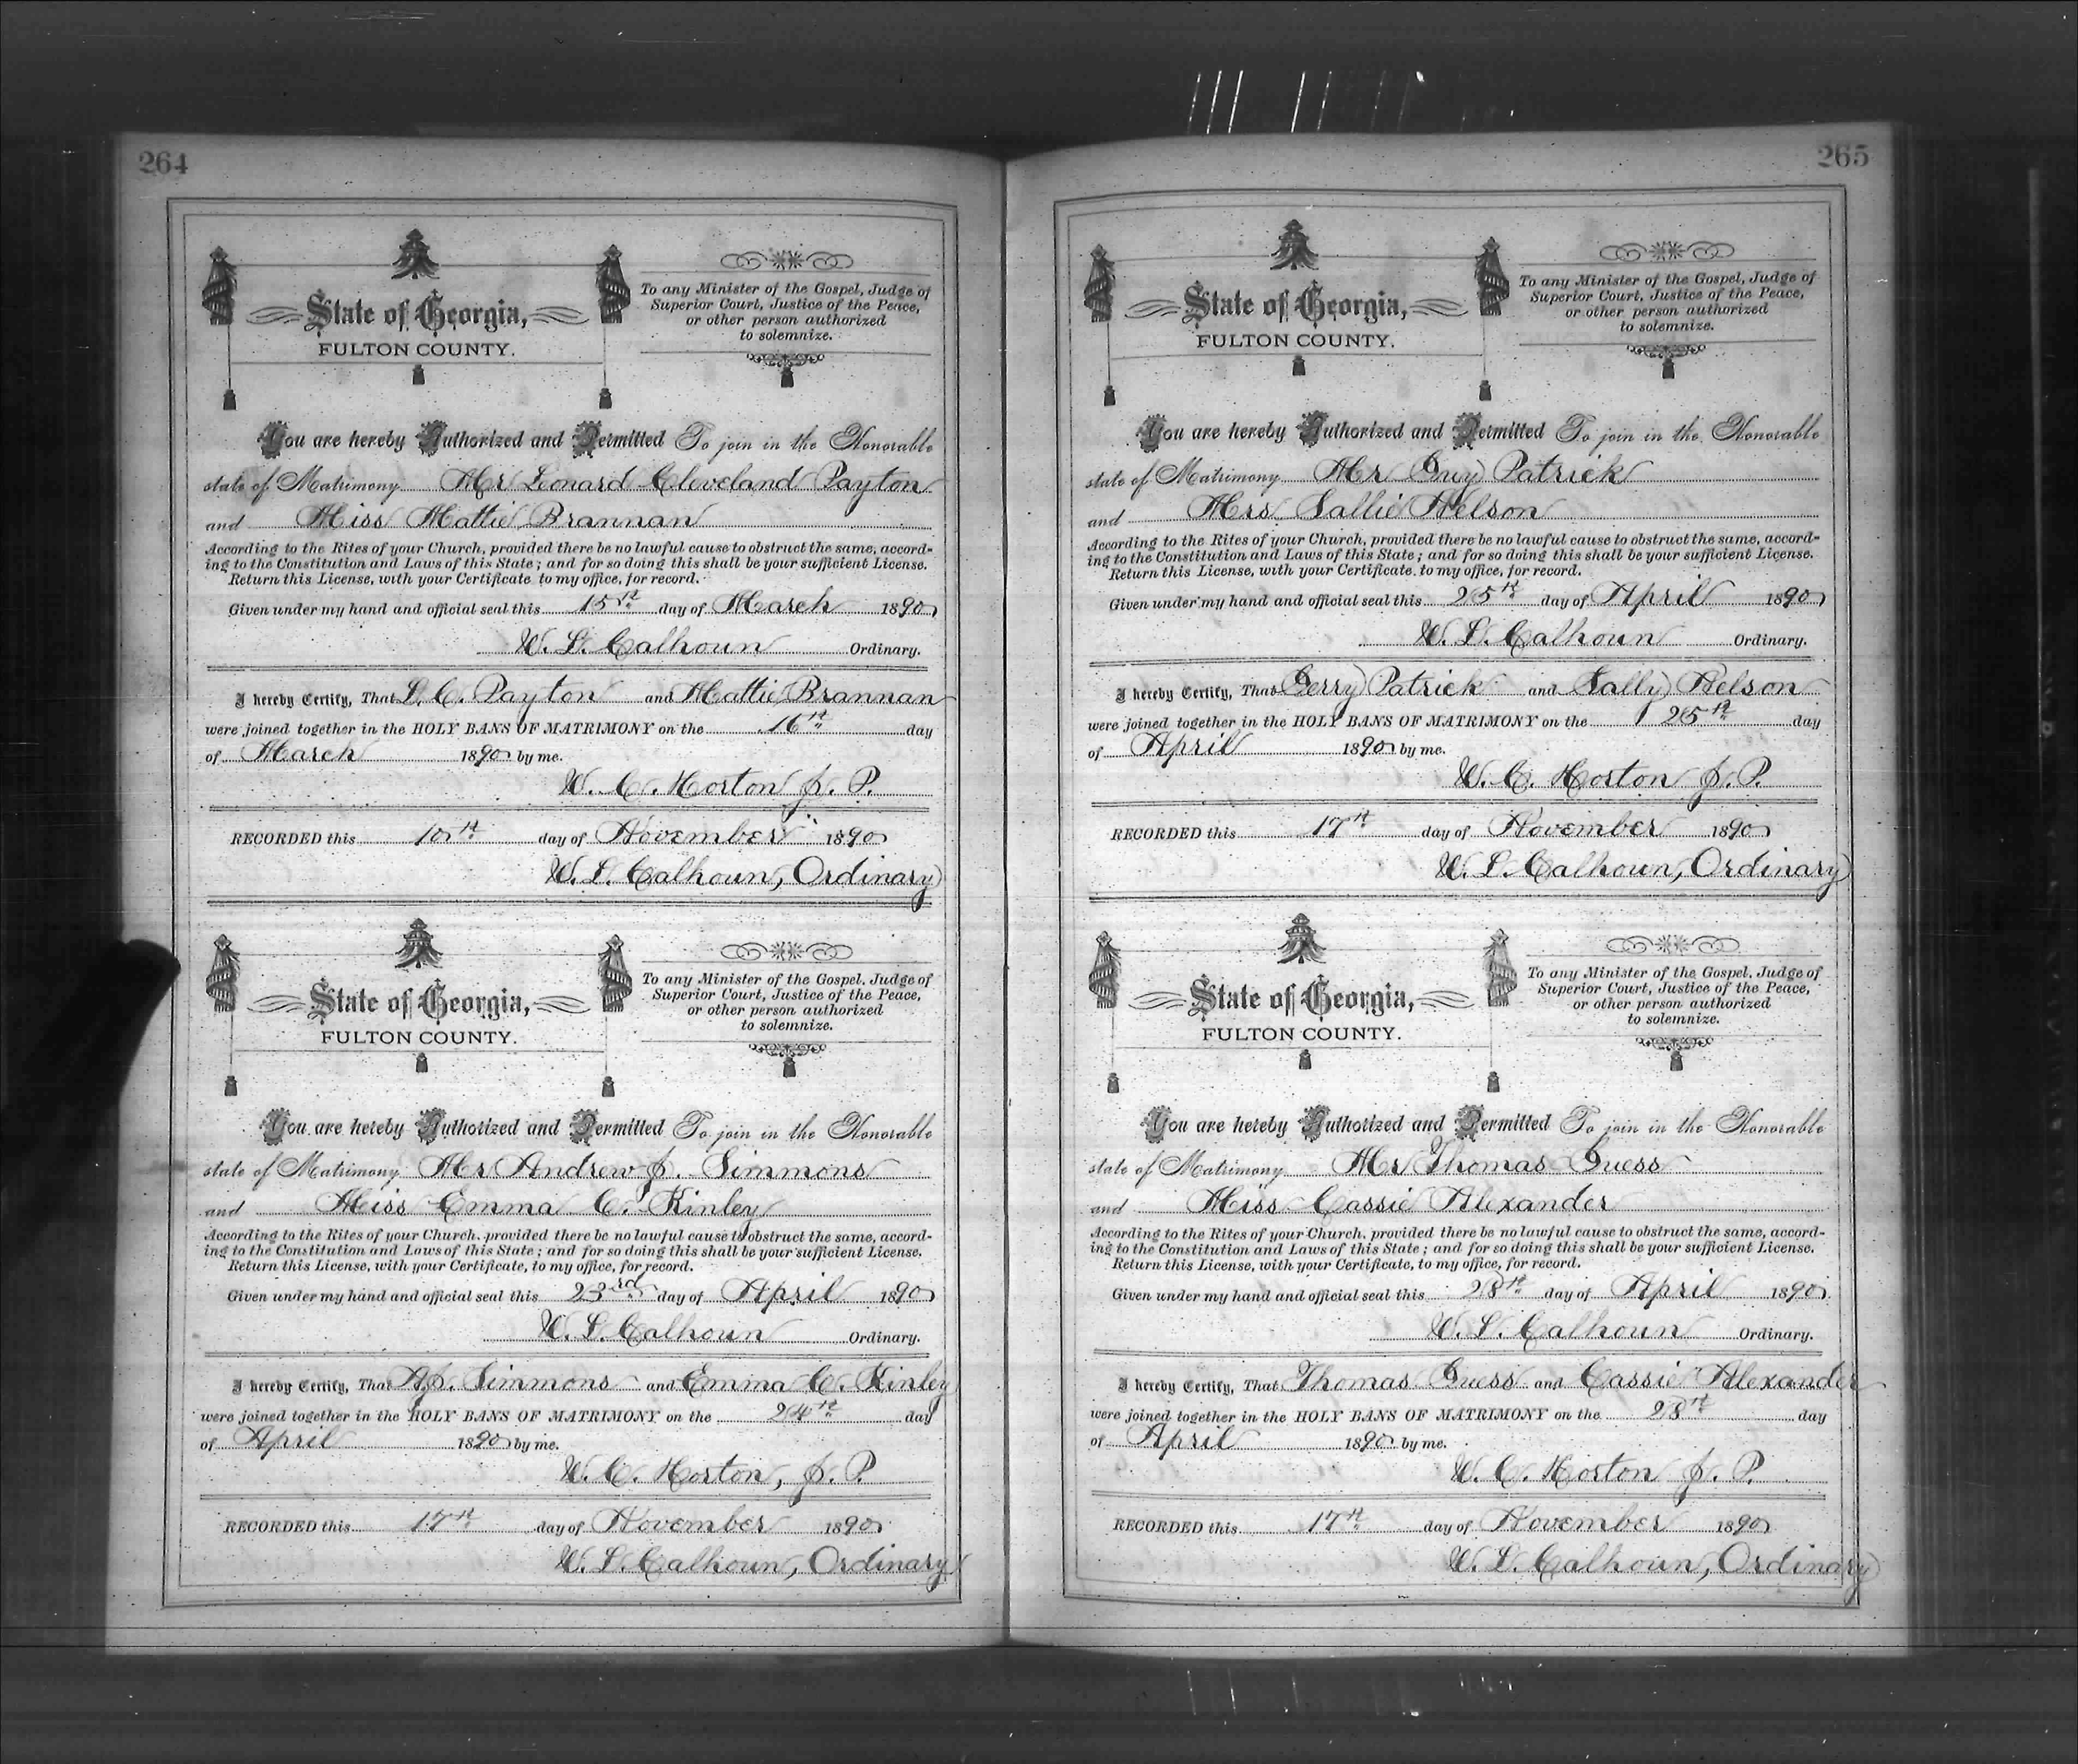 264
State of Georgia,
FULTON COUNTY.
To any Minister of the Gospel, Judge of
Superior Court, Justice of the Peace,
or other person authorized
to solemnize.
You are hereby Authorized and Permitted To join in the Honorable
state of Matrimony Mr Leonard Cleveland Payton
and Miss Mattie Brannan
According to the Rites of your Church, provided there be no lawful cause to obstruct the same, accord-
ing to the Constitution and Laws of this State; and for so doing this shall be your sufficient License.
Return this License, with your Certificate to my office, for record.
Given under my hand and official seal this 15th day of March 1890
W. L. Calhoun Ordinary.
I hereby Certify, That L. C. Payton and Mattie Brannan
were joined together in the HOLY BANS OF MATRIMONY on the 16th day
of March 1890 by me.
W. C. Horton J. P.
RECORDED this 10th day of November 1890
W. L. Calhoun, Ordinary
State of Georgia,
FULTON COUNTY.
To any Minister of the Gospel, Judge of
Superior Court, Justice of the Peace,
or other person authorized
to solemnize.
You are hereby Authorized and Permitted To join in the Honorable
state of Matrimony Mr Andrew J. Simmons
and Miss Emma C. Kinley
According to the Rites of your Church, provided there be no lawful cause to obstruct the same, accord-
ing to the Constitution and Laws of this State; and for so doing this shall be your sufficient License.
Return this License, with your Certificate, to my office, for record.
Given under my hand and official seal this 23rd day of April 1890
W. L. Calhoun Ordinary.
I hereby Certify, That A J. Simmons and Emma C. Kinley
were joined together in the HOLY BANS OF MATRIMONY on the 24th day
of April 1890 by me.
W. C. Horton, J. P.
RECORDED this 17th day of November 1890
W. L. Calhoun, Ordinary
265
State of Georgia,
FULTON COUNTY.
To any Minister of the Gospel, Judge of
Superior Court, Justice of the Peace,
or other person authorized
to solemnize.
You are hereby Authorized and Permitted To join in the Honorable
state of Matrimony Mr Guy Patrick
and Mrs Sallie Nelson
According to the Rites of your Church, provided there be no lawful cause to obstruct the same, accord-
ing to the Constitution and Laws of this State; and for so doing this shall be your sufficient License.
Return this License, with your Certificate, to my office, for record.
Given under my hand and official seal this 25th day of April 1890
W. L. Calhoun Ordinary.
I hereby Certify, That Gerry Patrick and Sally Nelson
were joined together in the HOLY BANS OF MATRIMONY on the 25th day
of April 1890 by me.
W. C. Horton J. P.
RECORDED this 17th day of November 1890
W. L. Calhoun, Ordinary
State of Georgia,
FULTON COUNTY.
To any Minister of the Gospel, Judge of
Superior Court, Justice of the Peace,
or other person authorized
to solemnize.
You are hereby Authorized and Permitted To join in the Honorable
state of Matrimony Mr Thomas Guess
and Miss Cassie Alexander
According to the Rites of your Church, provided there be no lawful cause to obstruct the same, accord-
ing to the Constitution and Laws of this State; and for so doing this shall be your sufficient License.
Return this License, with your Certificate, to my office, for record.
Given under my hand and official seal this 28th day of April 1890
W. L. Calhoun Ordinary.
I hereby Certify, That Thomas Guess and Cassie Alexander
were joined together in the HOLY BANS OF MATRIMONY on the 28th day
of April 1890 by me.
W. C. Horton J. P.
RECORDED this 17th day of November 1890
W. L. Calhoun, Ordinary